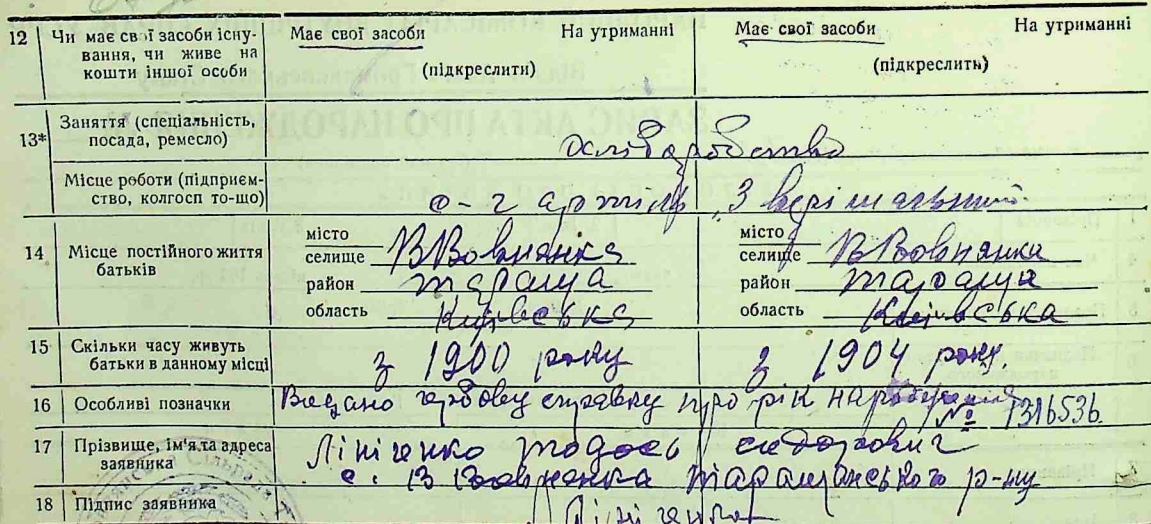 12 Чи має свої засоби існування, чи живе на кошти іншої особи Має свої засоби На утриманні Має свої засоби На утриманні
(підкреслити) (підкреслить)
13* Заняття (спеціальність, посада, ремесло)
Місце роботи (підприємство, колгосп то-що) с-г артиль
14 Місце постійного життя батьків
місто селище В Вовнянка місто селище В Вовнянка
район Тараща район Тараща
область Київська область Київська
15 Скільки часу живуть батьки в данному місці з 1900 року з 1904 року
16 Особливі позначки Видано гербову справку про рік народження № 1316536
17 Прізвище, ім'я та адреса заявника Лініченко Тодось Сидорович
с. В Вовнянка Таращанського р-ну
18 Підпис заявника Лініченко